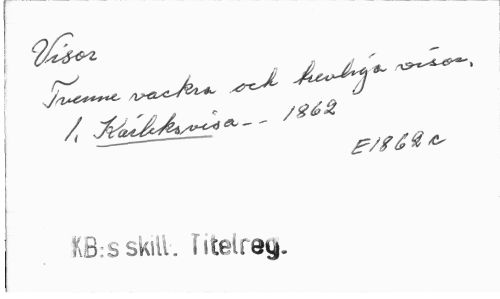 Visor
Tvenne vackra och trevliga visor.
1. Kärleksvisa -- 1862
E1862c
KB:s skill. Titelreg.